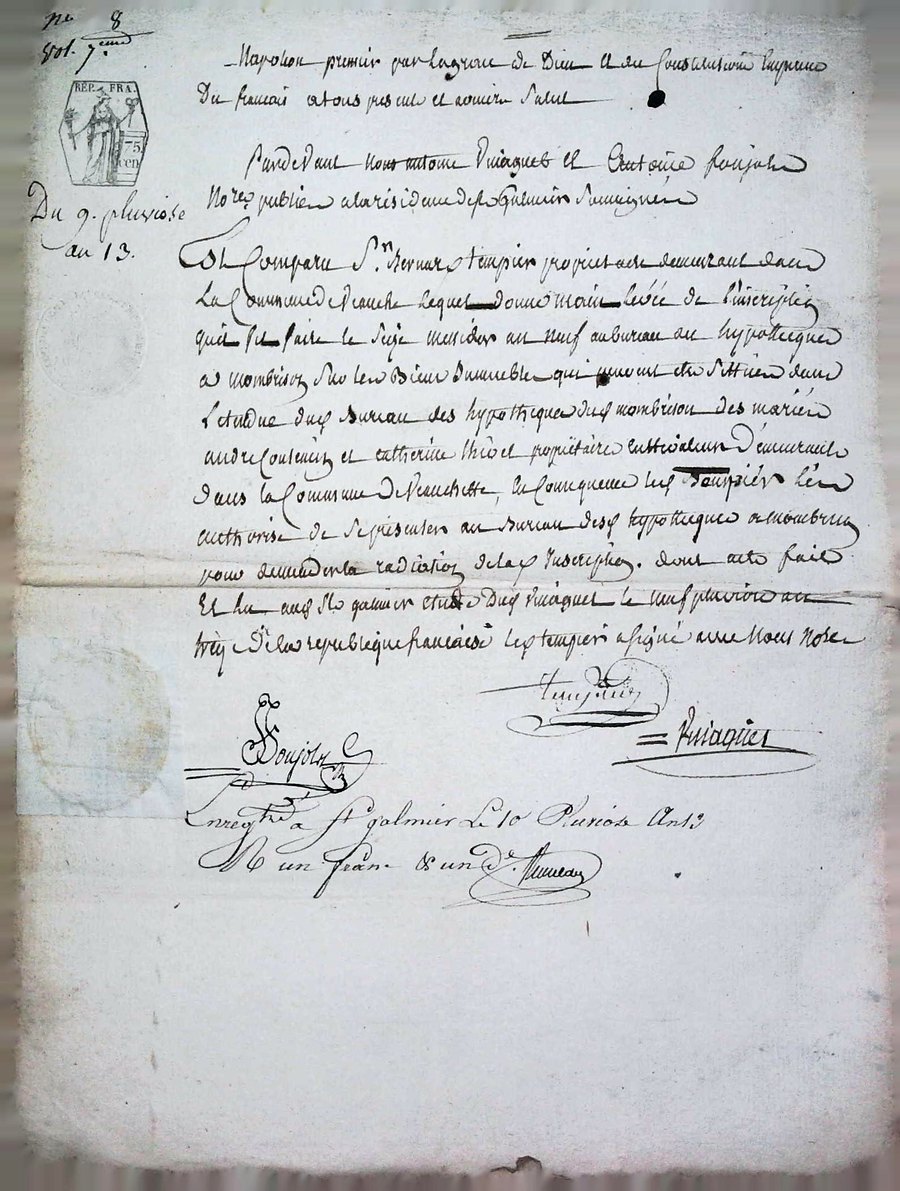 No 8
Vol. 7eme
REP. FRA.
75
cen
Du 9. pluviose
an 13.
Napoleon premier par la grace de Dieu et des Constitutions Empereur
Des francais a tous presents et avenir Salut
Pardevant nous antoine Puiaguet et Antoine Poujols
Nores publics a la residence de st Galmier Soussignés
Est Comparu Sr. Bernard tempier proprietaire demeurant dans
La Commune de Veauche Lequel donne main levée de l'inscription
quil fit faire le Seize messidor an neuf au bureau des hypotheques
a mombrison Sur les Biens Immeubles qui peuvent etre Sittués dans
L'etendue dud Bureau des hypotheques dud mombrison des mariés
andre et catherine propriétaire cultivateurs Demeurants
dans la Commune De Veauchette, en Consequence led Sr tempier les
authorise de Se presenter au Bureau desd hypotheques a mombrison
pour demander la radiation de lad Inscription. dont acte fait
Et lu aud St galmier etude Dud Puiaguet le neuf pluviose an
treize De la republique francaise led tempier a signé avec Nous Notre
tempier
Poujols
Puiaguet
Enregtré a St galmier Le 10 Pluviose An 13
R un franc & un De.